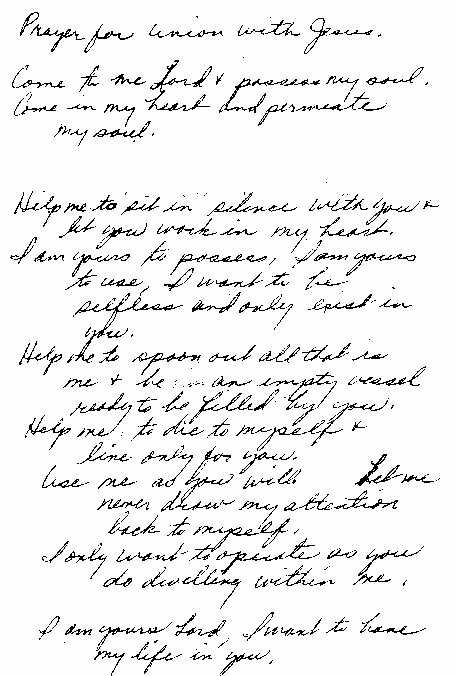 Prayer for Union with Jesus.
Come to me Lord & possess my soul.
Come in my heart and permeate
my soul.
Help me to sit in silence with you &
let you work in my heart.
I am yours to possess, I am yours
to use, I want to be
selfless and only exist in
you.
Help me to spoon out all that is
me & be an empty vessel
ready to be filled by you.
Help me to die to myself &
live only for you.
Use me as you will. Let me
never draw my attention
back to myself.
I only want to operate as you
do dwelling within me.
I am yours Lord, I want to have
my life in you.